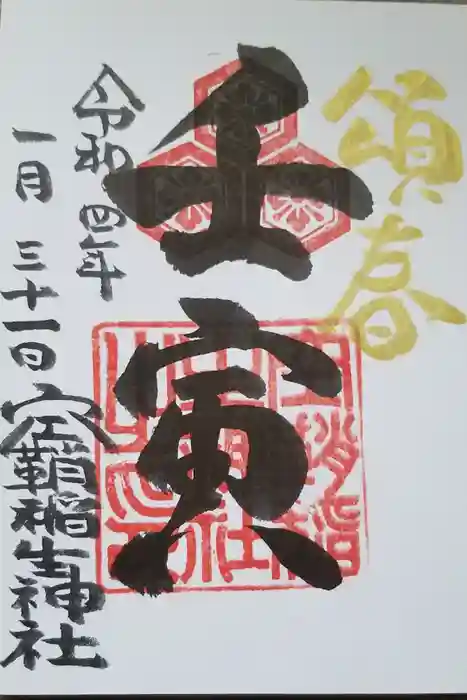 頌春
壬寅
令和四年
一月三十一日
空鞘稲生神社